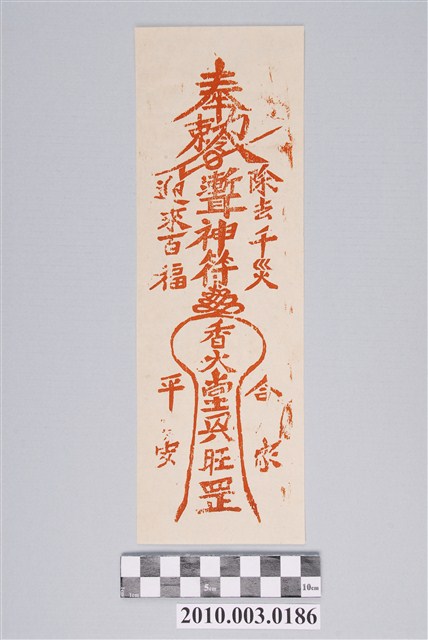 奉
勅令
聻神符
除去千災
迎來百福
香火堂興旺罡
合家
平安
1cm
5cm
10cm
2010.003.0186